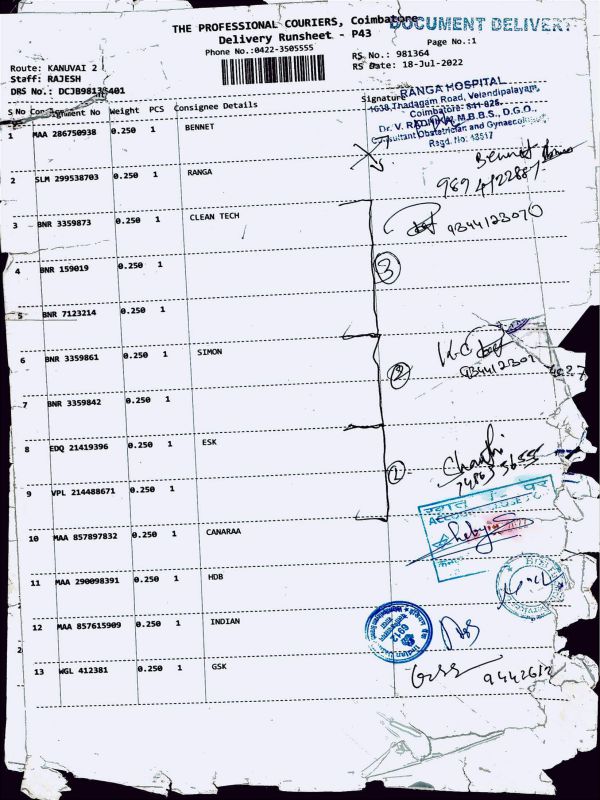 THE PROFESSIONAL COURIERS, Coimbatore
DOCUMENT DELIVERY
Delivery Runsheet - P43
Phone No.:0422-3505555
Page No.:1
Route: KANUVAI 2
Staff: RAJESH
DRS No.: DCJB98136401
RS No.: 981364
RS Date: 18-Jul-2022
S No Consignment No Weight PCS Consignee Details Signature
RANGA HOSPITAL
1638, Thadagam Road, Velandipalayam,
Coimbatore- 641 025.
Dr. V. RADHIKA, M.B.B.S., D.G.O.,
Consultant Obstetrician and Gynaecologist
Regd. No. 43517
1 MAA 286750938 0.250 1 BENNET
Bennet
2 SLM 299538703 0.250 1 RANGA
3 BNR 3359873 0.250 1 CLEAN TECH
9344123070
4 BNR 159019 0.250 1
3
5 BNR 7123214 0.250 1
6 BNR 3359861 0.250 1 SIMON
2
7 BNR 3359842 0.250 1
8 EDQ 21419396 0.250 1 ESK
9 VPL 214488671 0.250 1
10 MAA 857897832 0.250 1 CANARAA
11 MAA 290098391 0.250 1 HDB
12 MAA 857615909 0.250 1 INDIAN
6912
13 WGL 412381 0.250 1 GSK
9442612